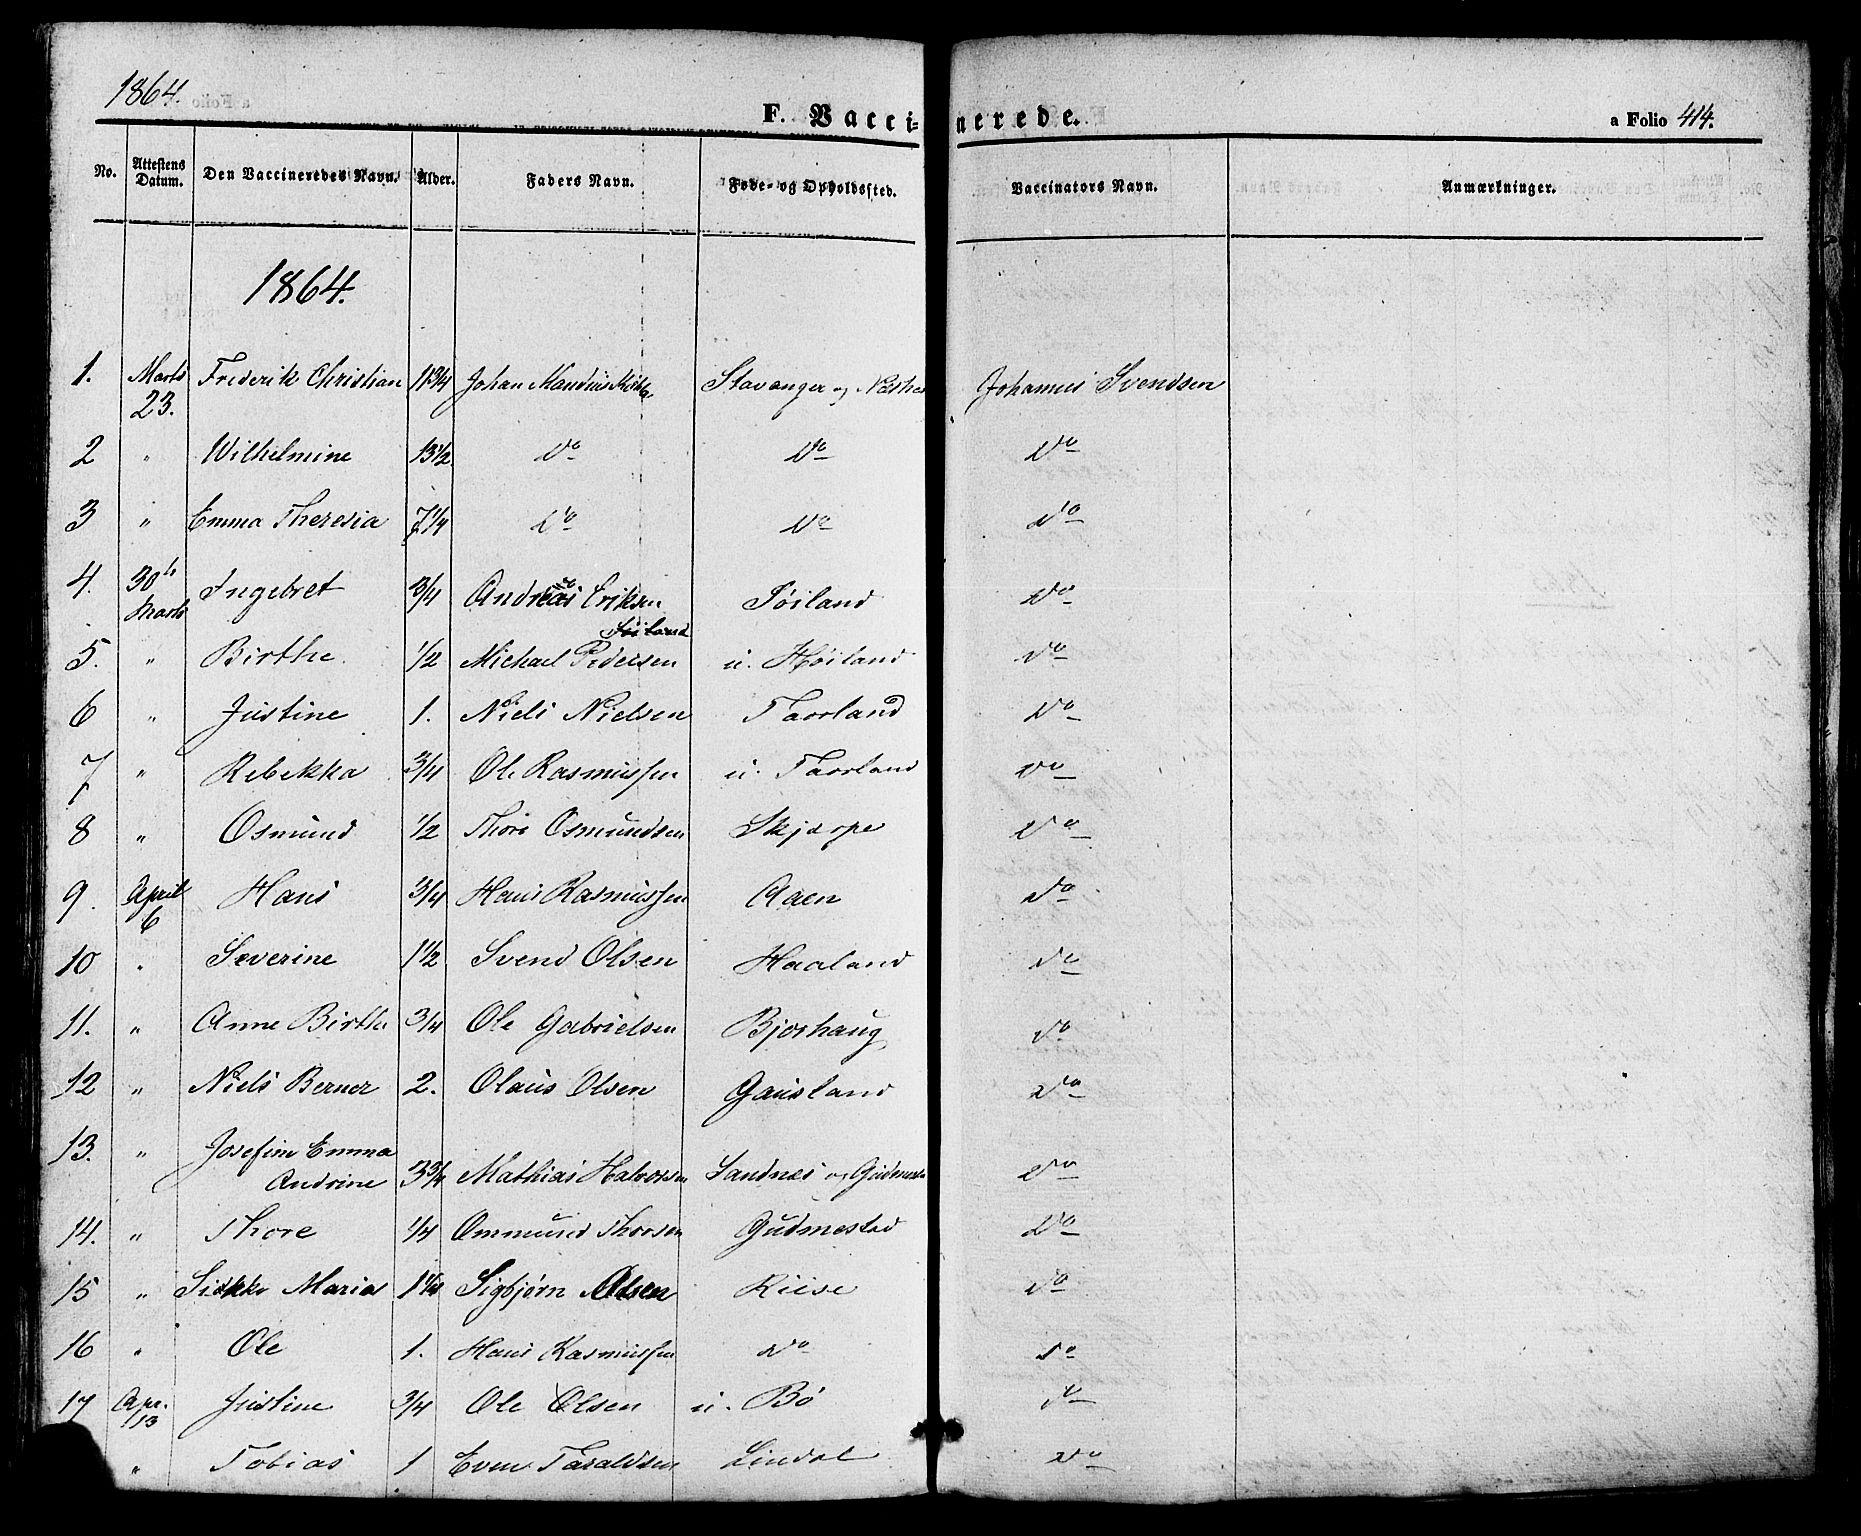 1864.
F. Vaccinerede.
a Folio 414.
No. Attestens Datum. Den Vaccineredes Navn. Alder. Faders Navn. Føde- og Opholdssted. Vaccinators Navn. Anmærkninger.
1864.
1. Marts 23. Frederik Christian 11 3/4 Johan Stavanger og Johannes Svendsen
2 " Wilhelmine 13 1/2 Do Do Do
3 " Emma Theresia 7 1/4 Do Do Do
4. 30te Marts Ingebret 3/4 Andreas Eriksen Høiland Do
5. " Birthe 1/2 Michael Pedersen u. Høiland Do
6 " Justine 1. Niels Nielsen Taarland Do
7 " Rebekka 3/4 Ole Rasmussen u. Taarland Do
8 " Osmund 1/2 Thore Osmundsen Skjærpe Do
9. April 6 Hans 3/4 Hans Rasmussen Aaen Do
10 " Severine 1 1/2 Svend Olsen Haaland Do
11. " Anne Birthe 3/4 Ole Gabrielsen Bjorhaug Do
12 " Niels Berner 2. Olaus Olsen Gausland Do
13. " Josefine Emma
Andrine 3 3/4 Mathias Halvorsen Sandnes og Do
14. " Thore 1/4 Ommund Thorsen Gudmestad Do
15 " Marias 1 1/4 Sigbjørn Olsen Riise Do
16 " Ole 1. Hans Rasmussen Do Do
17 Apr. 13 Justine 3/4 Ole Olsen u. Bø Do
" Tobias 1 Even Taraldsen Lindal Do